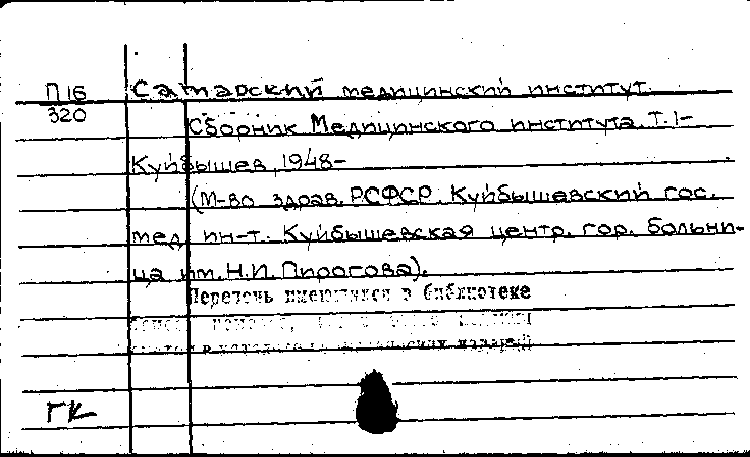 П16 Самарский медицинский институт.
320
Сборник Медицинского института. Т. 1-
Куйбышев, 1948-
(М-во здрав. РСФСР. Куйбышевский гос.
мед. ин-т. Куйбышевская центр. гор. больни-
ца им. Н.И. Пирогова).
Перечень имеющихся в библиотеке
ГК